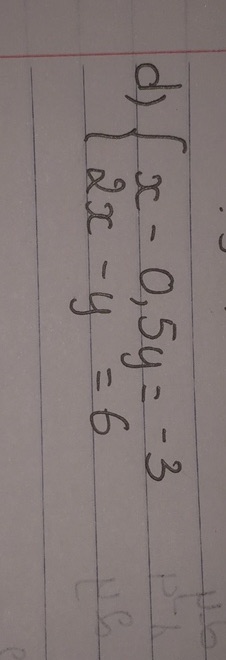 d) { x - 0,5y = -3
{ 2x - y = 6